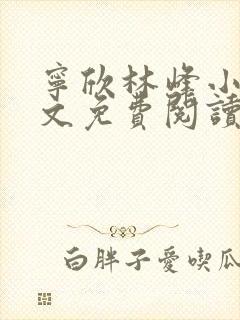 寧欣林峰小
文免費閱讀
白胖子愛喫瓜